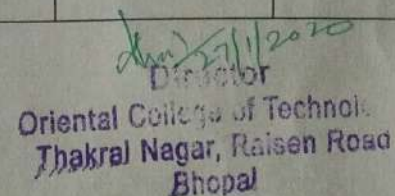 27/1/2020
Director
Oriental College of Technolo
Thakral Nagar, Raisen Road
Bhopal